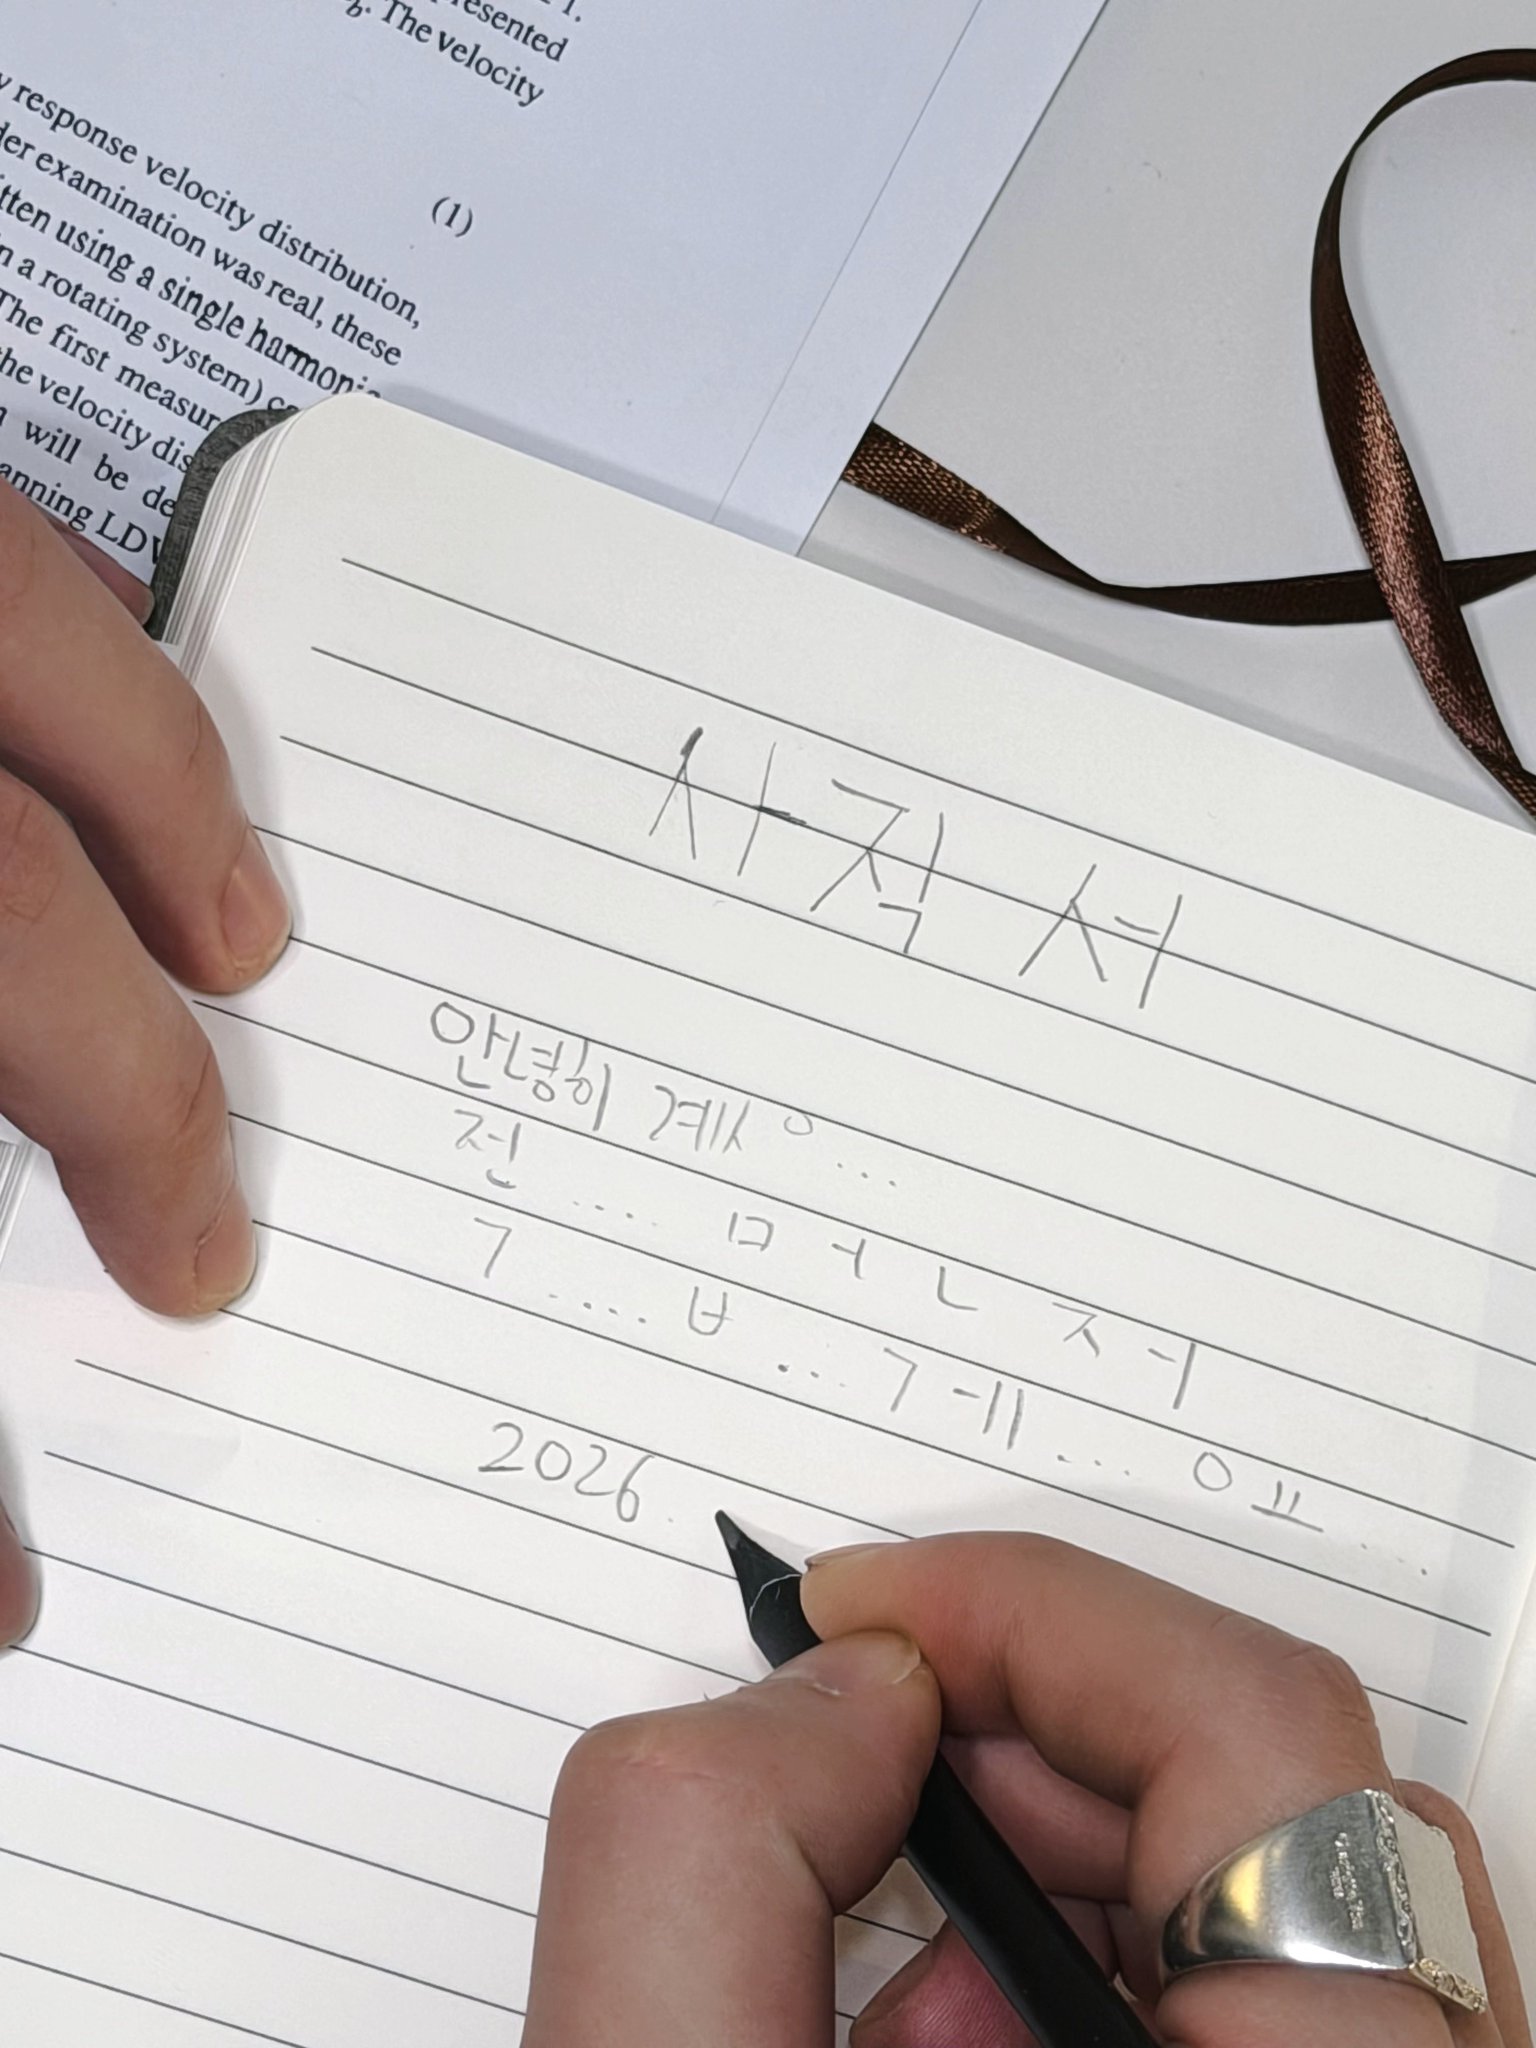 1.
presented
g. The velocity
(1)
y response velocity distribution,
der examination was real, these
itten using a single harmonic
n a rotating system) ca
The first measur
he velocity dis
will be de
anning LDV
사직서
안녕히 계시ㅇ...
전 .... ㅁ ㅓ ㄴ ㅈ ㅓ
ㄱ .... ㅂ ... ㄱ ㅔ ... ㅇ ㅛ ....
2026.